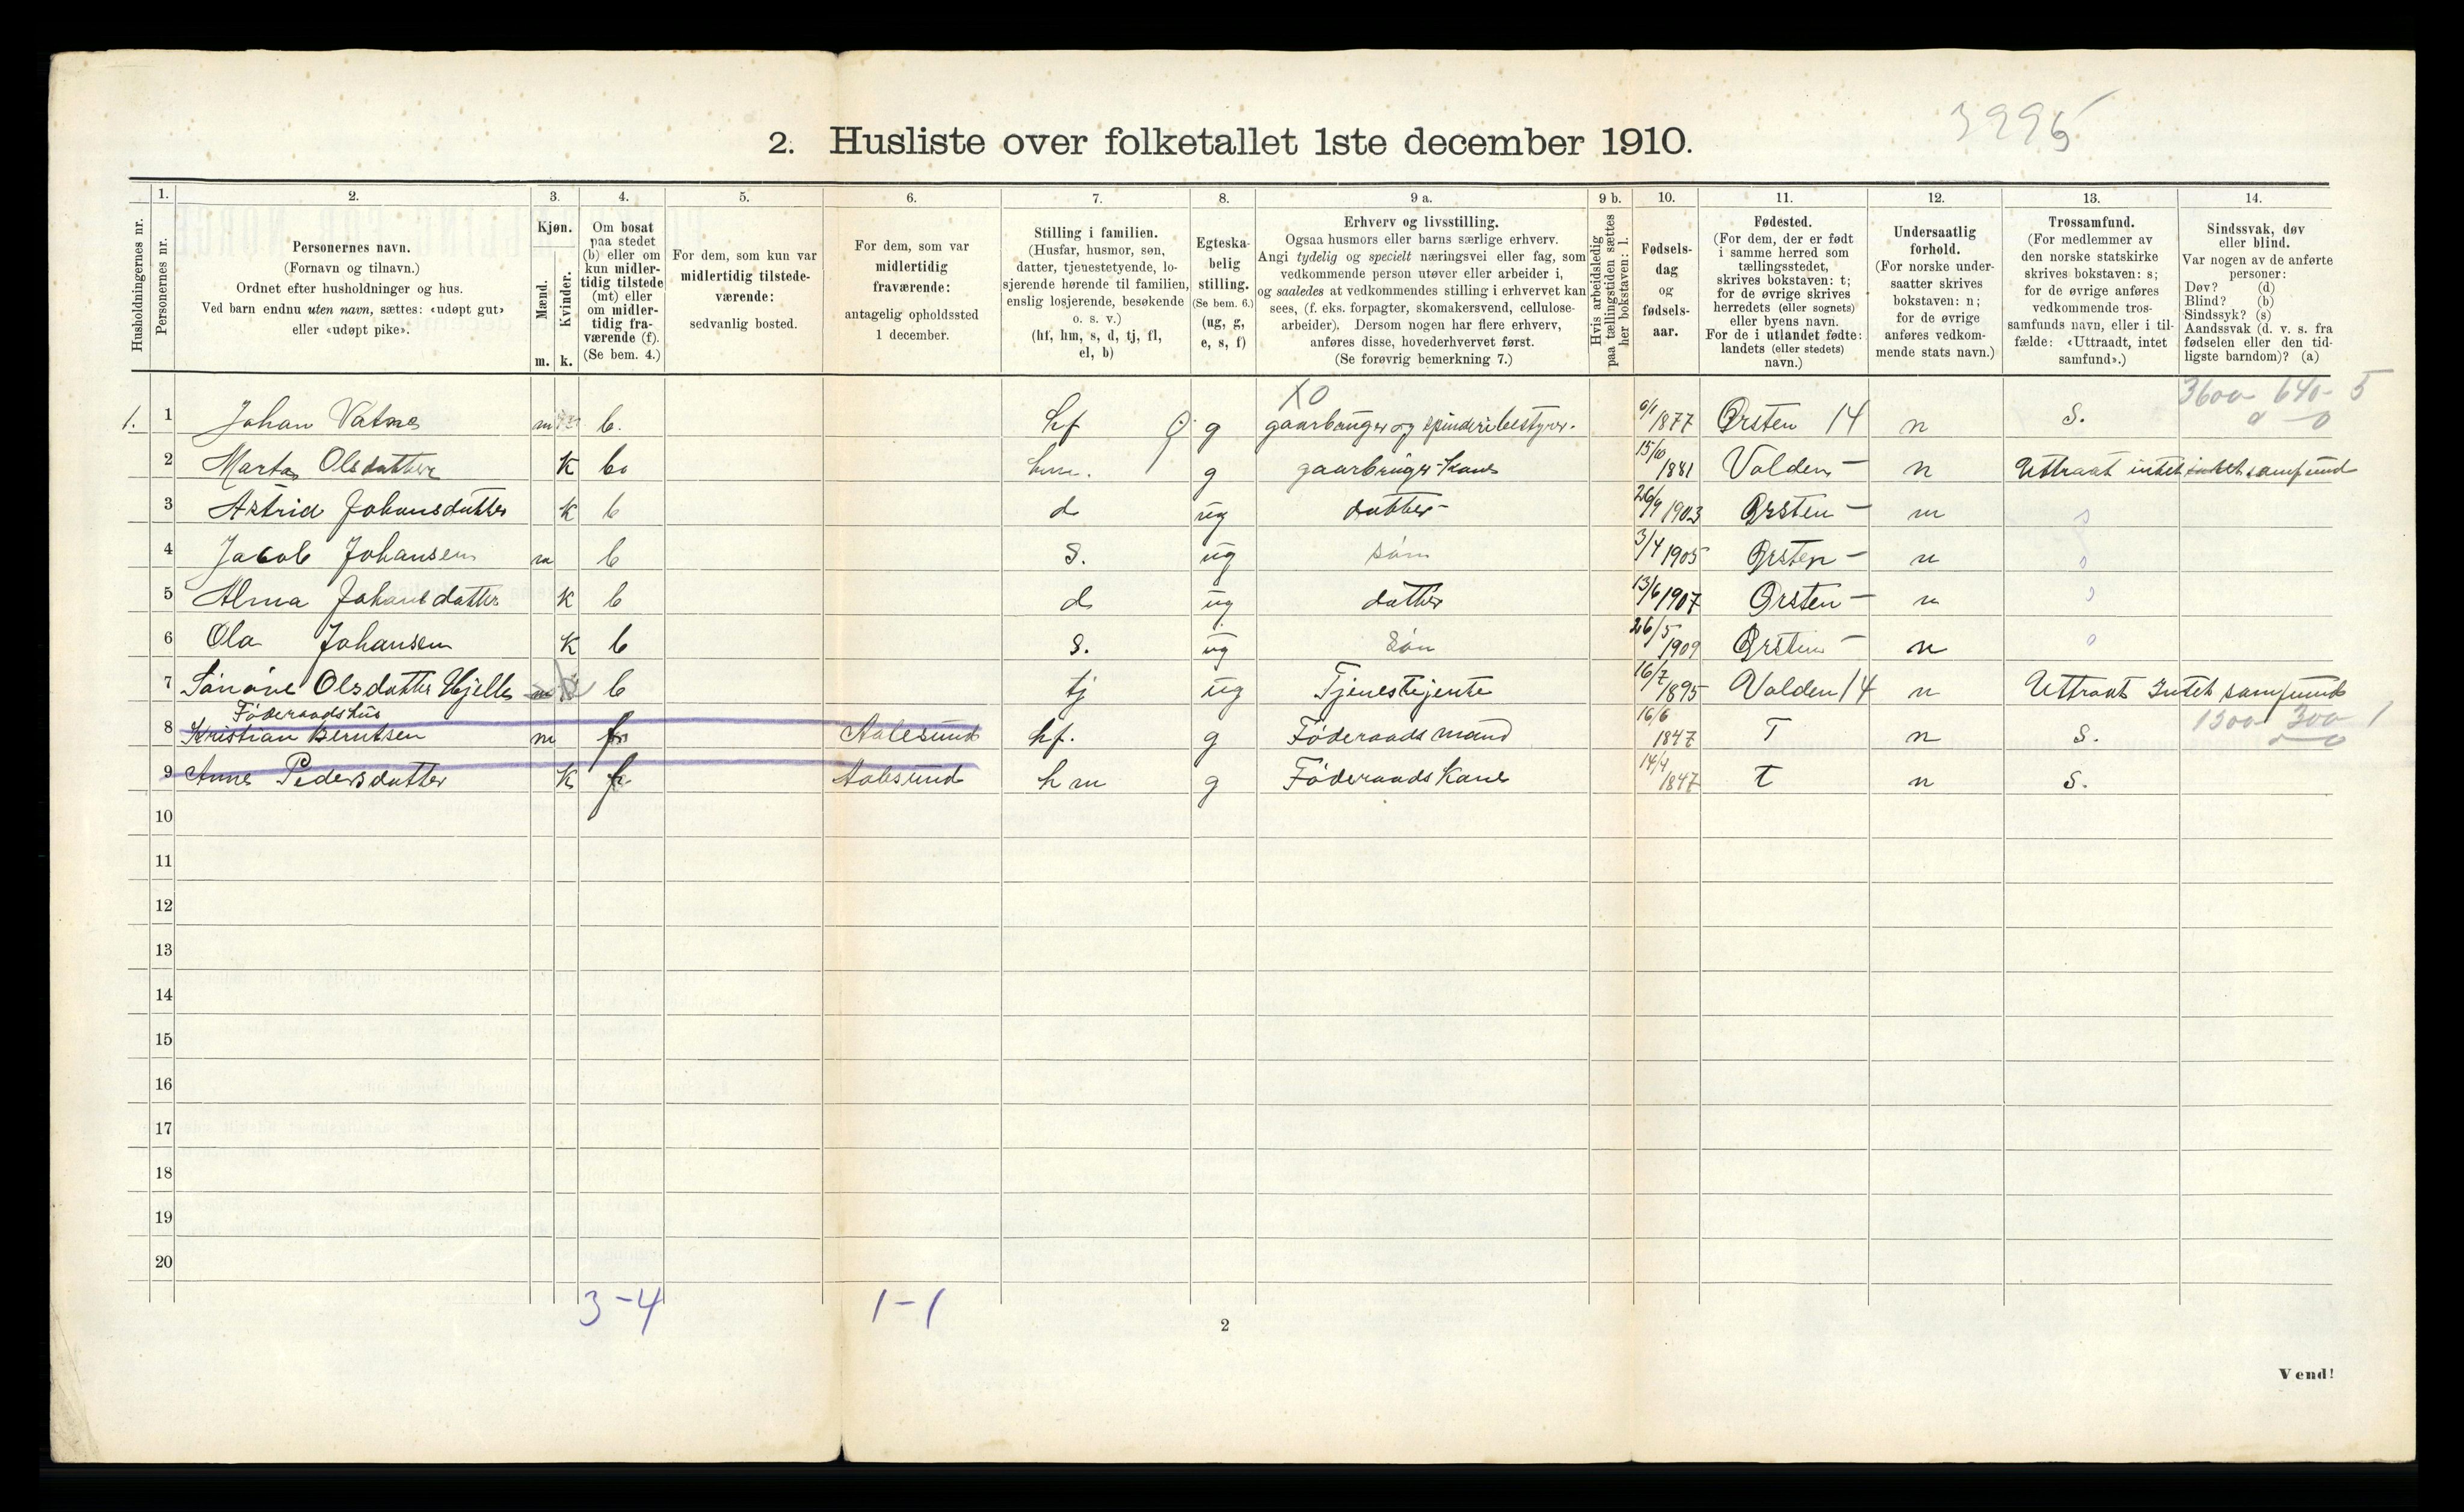 3995
2. Husliste over folketallet 1ste december 1910.
Husholdningernes nr.
1. Personernes nr.
2. Personernes navn. (Fornavn og tilnavn.) Ordnet efter husholdninger og hus. Ved barn endnu uten navn, sættes: «udøpt gut» eller «udøpt pike».
3. Kjøn. Mænd. m. Kvinder. k.
4. Om bosat paa stedet (b) eller om kun midlertidig tilstede (mt) eller om midlertidig fraværende (f). (Se bem. 4.)
5. For dem, som kun var midlertidig tilstedeværende: sedvanlig bosted.
6. For dem, som var midlertidig fraværende: antagelig opholdssted 1 december.
7. Stilling i familien. (Husfar, husmor, søn, datter, tjenestetyende, losjerende hørende til familien, enslig losjerende, besøkende o. s. v.) (hf, hm, s, d, tj, fl, el, b)
8. Egteskabelig stilling. (Se bem. 6.) (ug, g, e, s, f)
9 a. Erhverv og livsstilling. Ogsaa husmors eller barns særlige erhverv. Angi tydelig og specielt næringsvei eller fag, som vedkommende person utøver eller arbeider i, og saaledes at vedkommendes stilling i erhvervet kan sees, (f. eks. forpagter, skomakersvend, cellulosearbeider). Dersom nogen har flere erhverv, anføres disse, hovederhvervet først. (Se forøvrig bemerkning 7.)
9 b. Hvis arbeidsledig paa tællingstiden sættes her bokstaven: l.
10. Fødselsdag og fødselsaar.
11. Fødested. (For dem, der er født i samme herred som tællingsstedet, skrives bokstaven: t; for de øvrige skrives herredets (eller sognets) eller byens navn. For de i utlandet fødte: landets (eller stedets) navn.)
12. Undersaatlig forhold. (For norske undersaatter skrives bokstaven: n; for de øvrige anføres vedkommende stats navn.)
13. Trossamfund. (For medlemmer av den norske statskirke skrives bokstaven: s; for de øvrige anføres vedkommende trossamfunds navn, eller i tilfælde: «Uttraadt, intet samfund».)
14. Sindssvak, døv eller blind. Var nogen av de anførte personer: Døv? (d) Blind? (b) Sindssyk? (s) Aandssvak (d. v. s. fra fødselen eller den tidligste barndom)? (a)
XO 3600 640- 5
1. 1 Johan Vatne m b. hf g gaarbruger og spinderibestyrer. 6/1 1877 Ørsten 14 n S.
2 Marta Olsdatter K b hm. g gaarbruger-Kone 15/10 1881 Volden - n Uttraat intet intet samfund
3 Astrid Johansdatter K b d ug datter- 26/9 1903 Ørsten - n
4 Jacob Johansen m b S. ug søn 3/4 1905 Ørsten - n
5 Alma Johansdatter K b d ug datter 13/6 1907 Ørsten - n
6 Ola Johansen K b S. ug Søn 26/5 1909 Ørsten - n
7 Olsdatter Hjelle m b tj ug Tjenestejente 16/7 1895 Volden 14 n Uttraat Intet samfund
Føderaadshus 1300 300 1
8 Kristian Berntsen m f Aalesund hf. g Føderaadsmand 16/6 1847 T n S.
9 Anne Pedersdatter K f Aalesund hm g Føderaads Kone 14/4 1847 t n S.
10
11
12
13
14
15
16
17
18
19
20
3-4 1-1
2
Vend!